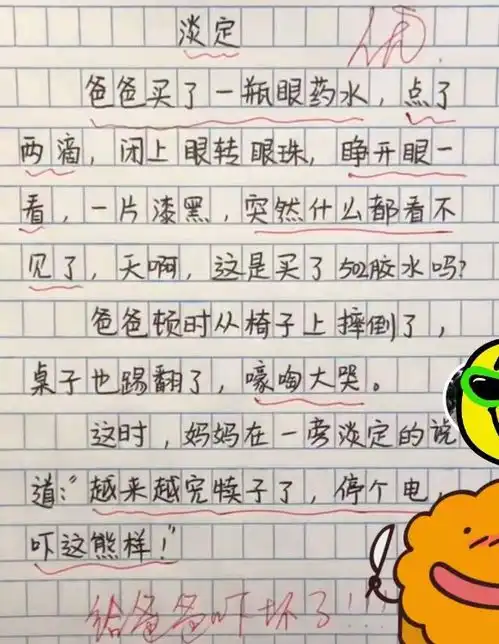 淡定
优
爸爸买了一瓶眼药水，点了
两滴，闭上眼转眼珠，睁开眼一
看，一片漆黑，突然什么都看不
见了，天啊，这是买了502胶水吗?
爸爸顿时从椅子上摔倒了，
桌子也踢翻了，嚎啕大哭。
这时，妈妈在一旁淡定的说
道:“越来越完犊子了，停个电，
吓这熊样！”
给爸爸吓坏了!!!